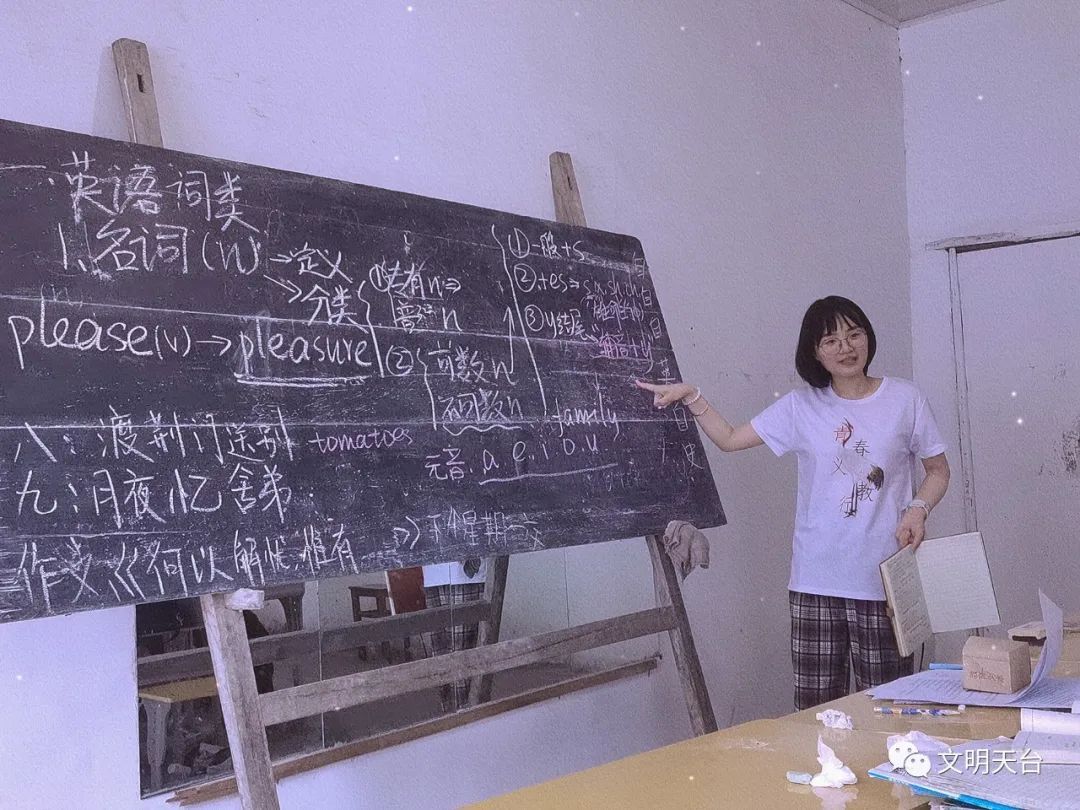 一、英语词类
1.名词(n) →定义
→分类
①专有n⇒
普通n
②可数n
不可数n
①一般+s
②+es⇒s.x.sh.ch
③y结尾
辅音+y
family
please(v)→pleasure
八：渡荆门送别 tomatoes
元音：a e i o u
九：月夜忆舍弟
作文《何以解忧,惟有 》⇒下个星期六
青春
义教
行
文明天台